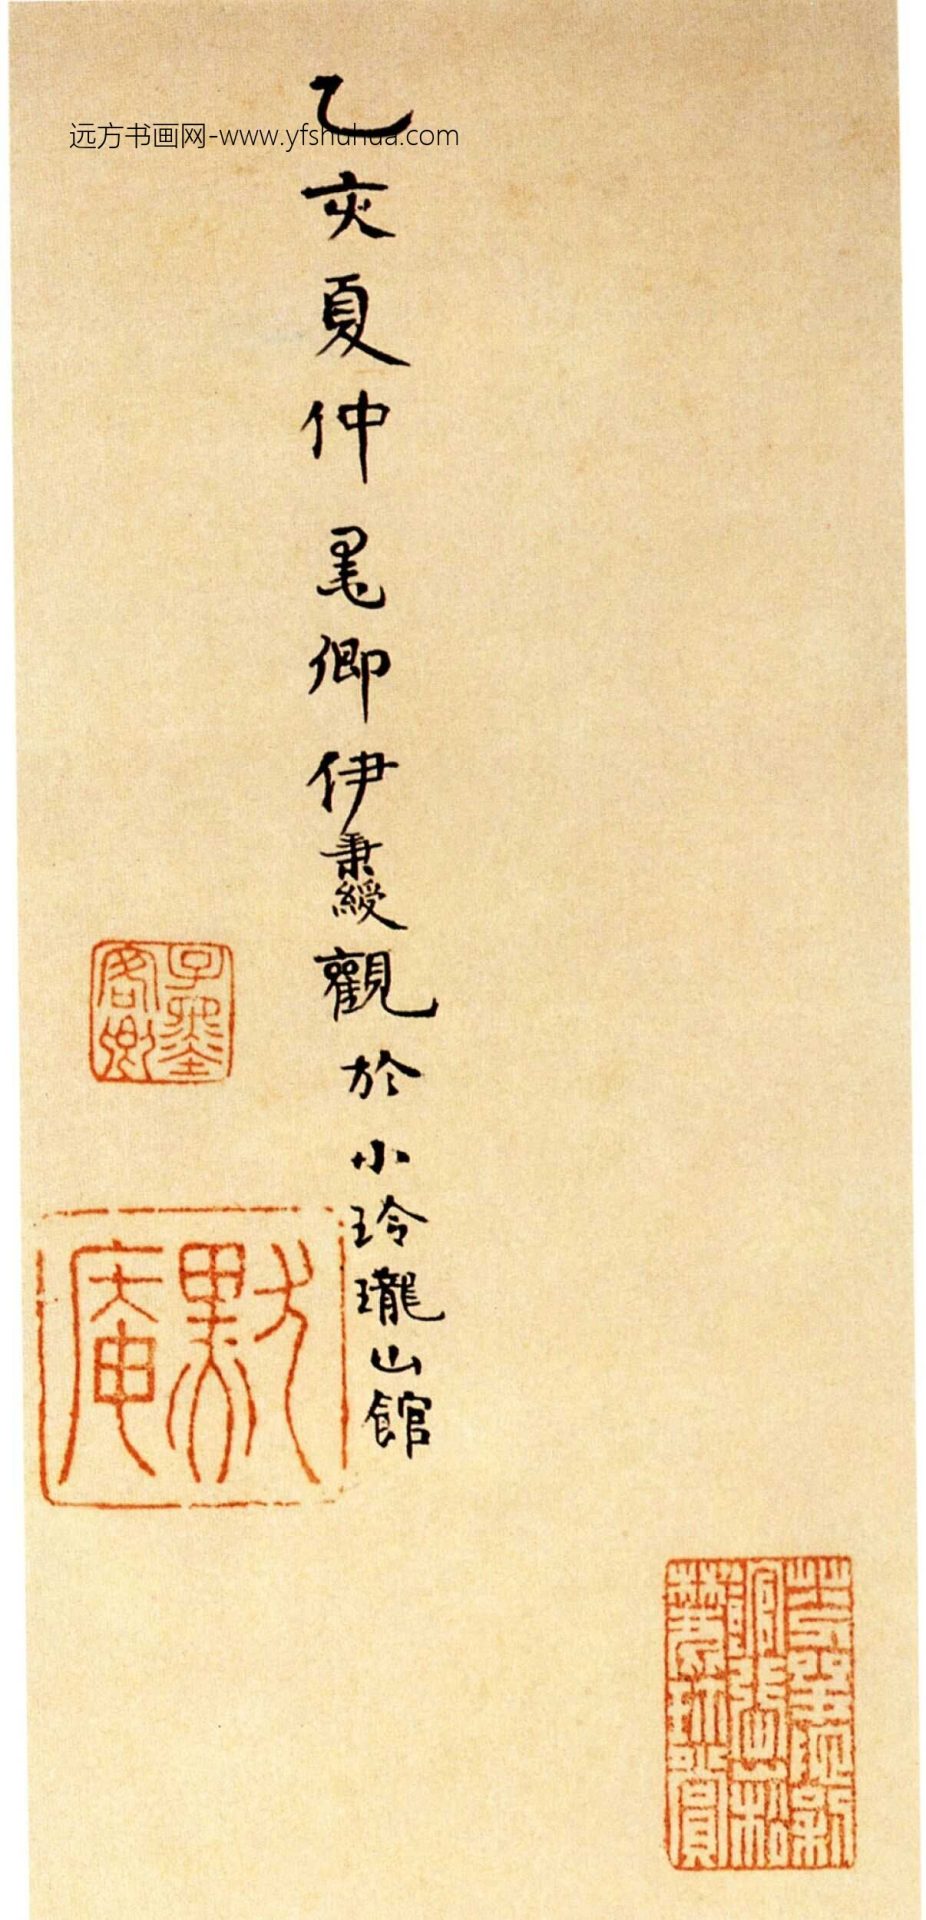 远方书画网-www.yfshuhua.com
乙亥夏仲墨卿伊秉綬觀於小玲瓏山館
子墨客卿
默庵